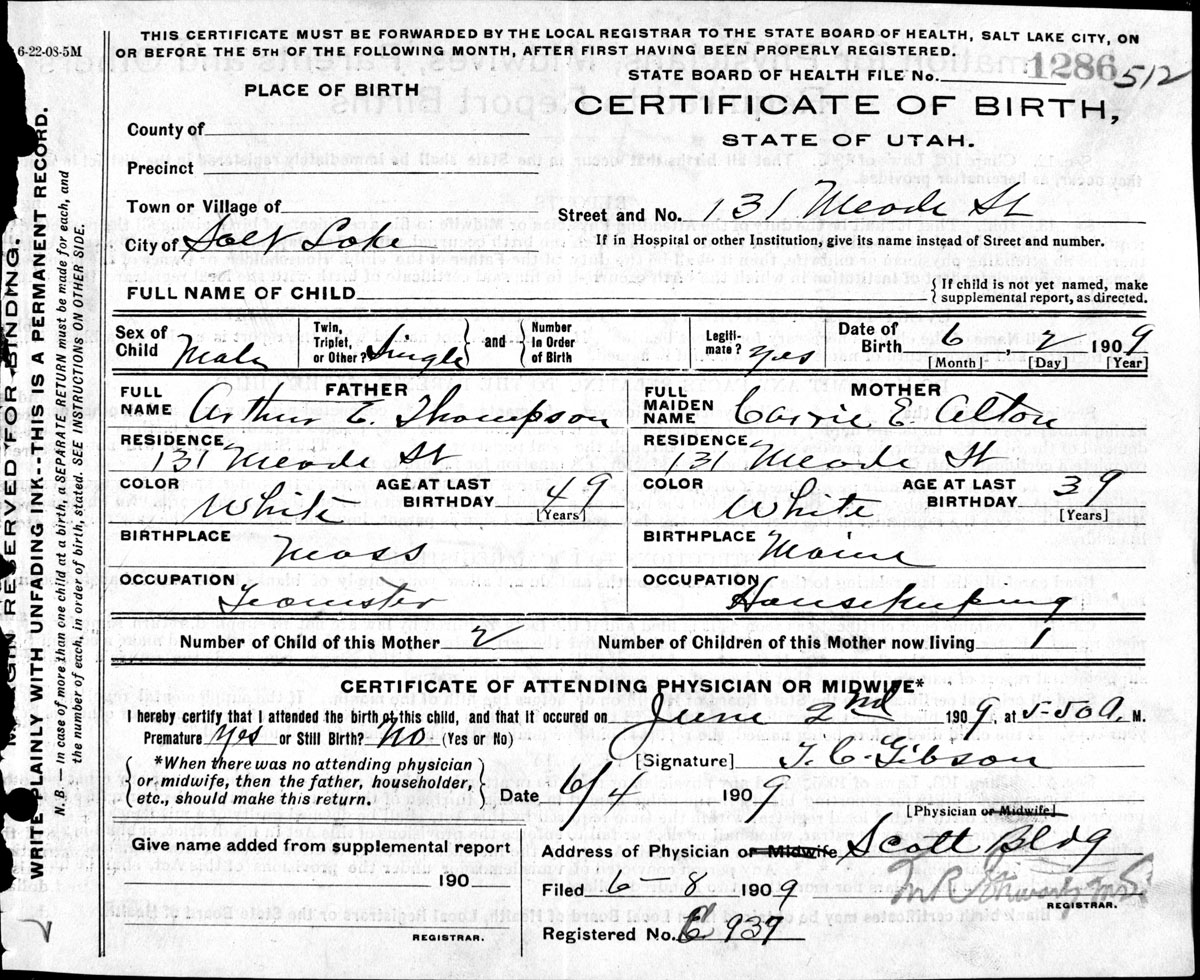 6-22-08-5M
THIS CERTIFICATE MUST BE FORWARDED BY THE LOCAL REGISTRAR TO THE STATE BOARD OF HEALTH, SALT LAKE CITY, ON
OR BEFORE THE 5TH OF THE FOLLOWING MONTH, AFTER FIRST HAVING BEEN PROPERLY REGISTERED.
STATE BOARD OF HEALTH FILE No. 1286 512
PLACE OF BIRTH
CERTIFICATE OF BIRTH,
STATE OF UTAH.
County of
Precinct
Town or Village of
Street and No. 131 Meade St
City of Salt Lake
If in Hospital or other Institution, give its name instead of Street and number.
FULL NAME OF CHILD
{If child is not yet named, make
supplemental report, as directed.
Sex of Child Male
Twin, Triplet, or Other? Single } and { Number In Order of Birth
Legitimate? yes
Date of Birth 6 2 1909
[Month] [Day] [Year]
FATHER
FULL NAME Arthur E. Thompson
MOTHER
FULL MAIDEN NAME Carrie E. Alton
RESIDENCE 131 Meade St
RESIDENCE 131 Meade St
COLOR White AGE AT LAST BIRTHDAY 49 [Years]
COLOR White AGE AT LAST BIRTHDAY 39 [Years]
BIRTHPLACE Mass
BIRTHPLACE Maine
OCCUPATION Teamster
OCCUPATION Housekeeping
Number of Child of this Mother 2 Number of Children of this Mother now living 1
CERTIFICATE OF ATTENDING PHYSICIAN OR MIDWIFE*
I hereby certify that I attended the birth of this child, and that it occured on June 2nd 1909, at 5-50 a. M.
Premature yes or Still Birth? no (Yes or No)
{*When there was no attending physician
or midwife, then the father, householder,
etc., should make this return.}
[Signature] T. C. Gibson
Date 6/4 1909
[Physician or Midwife]
Give name added from supplemental report
Address of Physician or Midwife Scott Bldg
190
Filed 6 8 1909
REGISTRAR.
REGISTRAR.
Registered No. E 939
MARGIN RESERVED FOR BINDING.
WRITE PLAINLY WITH UNFADING INK--THIS IS A PERMANENT RECORD.
N.B.— In case of more than one child at a birth, a SEPARATE RETURN must be made for each, and
the number of each, in order of birth, stated. SEE INSTRUCTIONS ON OTHER SIDE.
2